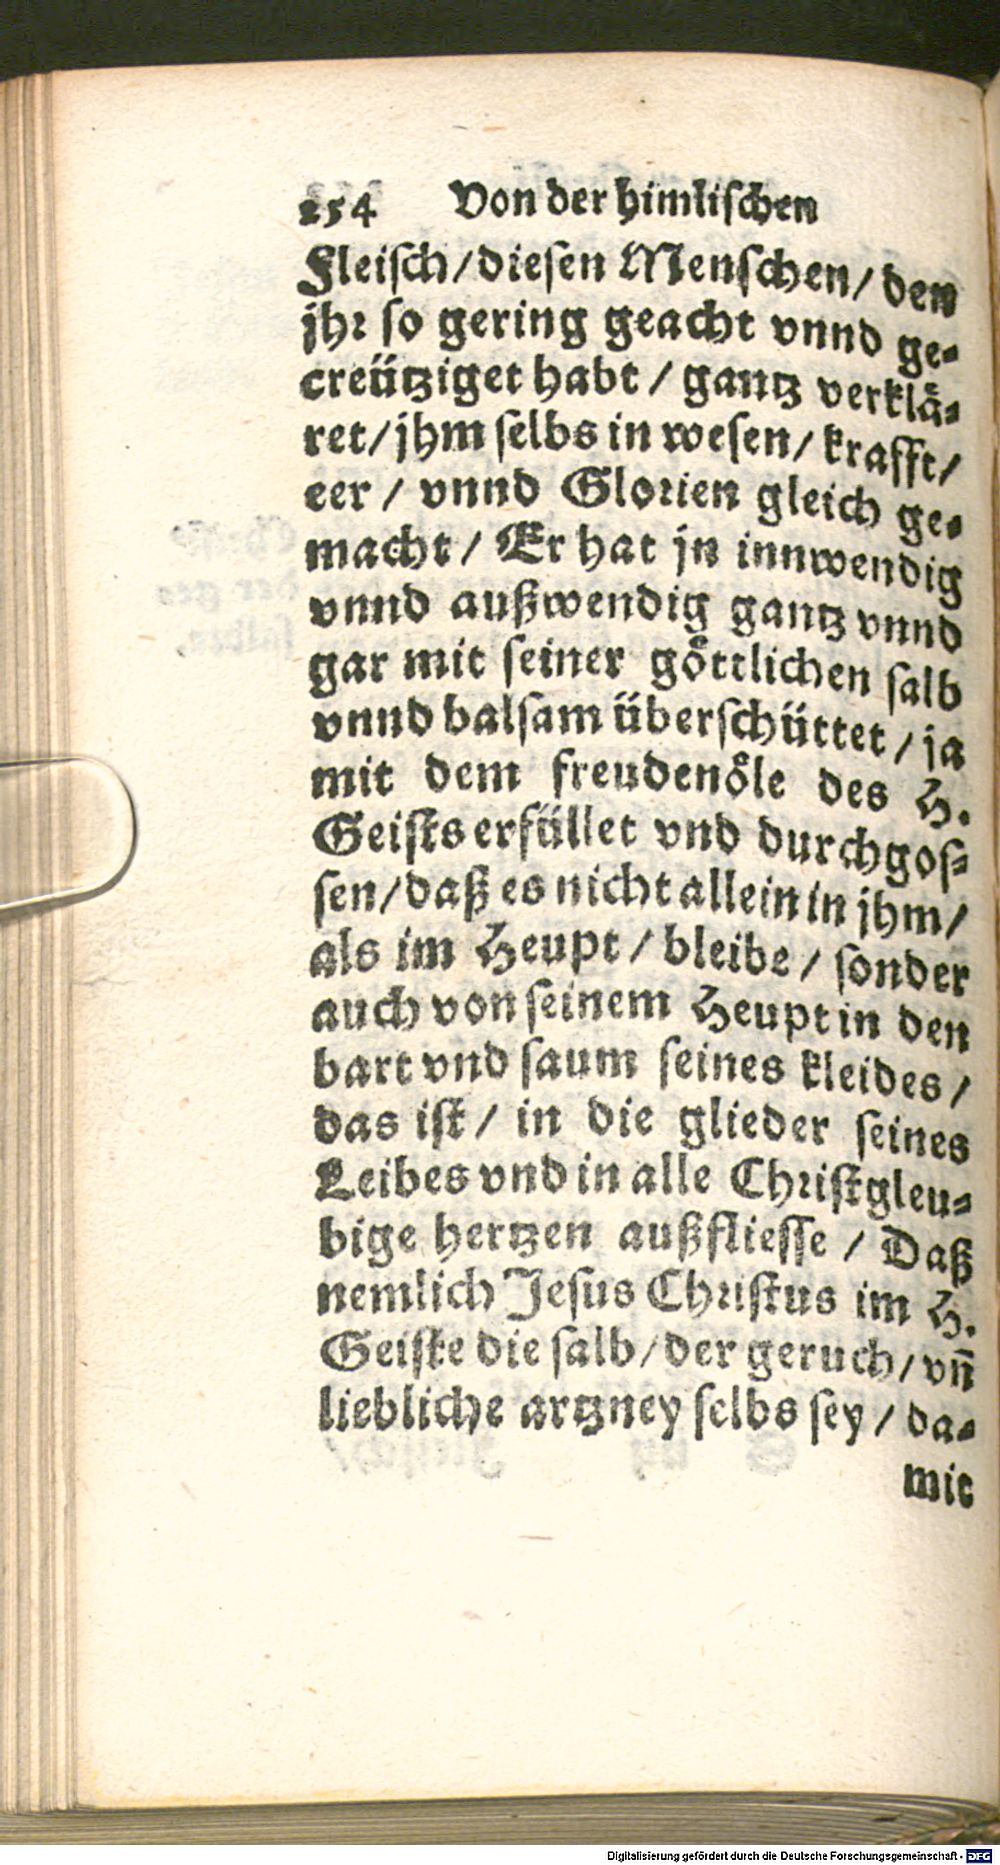 254 Von der himlischen
Fleisch/diesen Menschen/den
jhr so gering geacht vnnd ge⸗
creützjget habt/ gantz verklä⸗
ret/jhm selbs in wesen/krafft/
eer/ vnnd Glorien gleich ge⸗
macht/ Er hat jn innwendig
vnnd außwendig gantz vnnd
gar mit seiner göttlichen salb
vnnd balsam überschüttet/ ja
mit dem freudenöle des H.
Geists erfüllet vnd durchgos⸗
sen/daß es nicht allein in jhm/
als im Heupt/ bleibe/ sonder
auch von seinem Heupt in den
bart vnd saum seines kleides/
das ist/ in die glieder seines
Leibes vnd in alle Christgleu⸗
bige hertzen außfliesse/ Daß
nemlich Jesus Christus im H.
Geiste die salb/der geruch/vn̄
liebliche artzney selbs sey/ da⸗
mit
Digitalisierung gefördert durch die Deutsche Forschungsgemeinschaft - DFG